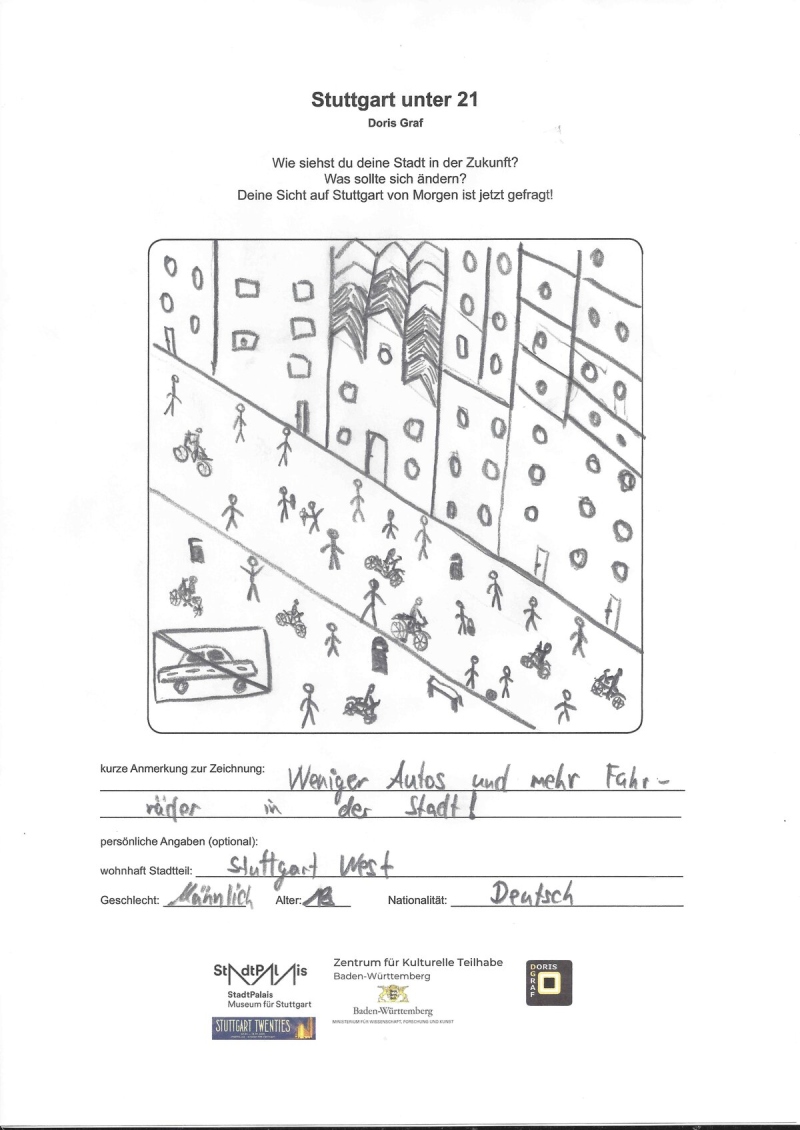 Stuttgart unter 21
Doris Graf
Wie siehst du deine Stadt in der Zukunft?
Was sollte sich ändern?
Deine Sicht auf Stuttgart von Morgen ist jetzt gefragt!
kurze Anmerkung zur Zeichnung: Weniger Autos und mehr Fahr-
räder in der Stadt!
persönliche Angaben (optional):
wohnhaft Stadtteil: Stuttgart West
Geschlecht: Männlich Alter: Nationalität: Deutsch
StadtPalais
StadtPalais
Museum für Stuttgart
STUTTGART TWENTIES
Zentrum für Kulturelle Teilhabe
Baden-Württemberg
Baden-Württemberg
MINISTERIUM FÜR WISSENSCHAFT, FORSCHUNG UND KUNST
DORIS
GRAF